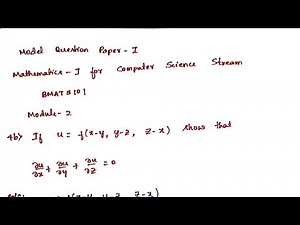 Model Question Paper - I
Mathematics - I for Computer Science Stream
BMATS101
Module - 2
4b) If u = f(x-y, y-z, z-x) show that
∂u/∂x + ∂u/∂y + ∂u/∂z = 0